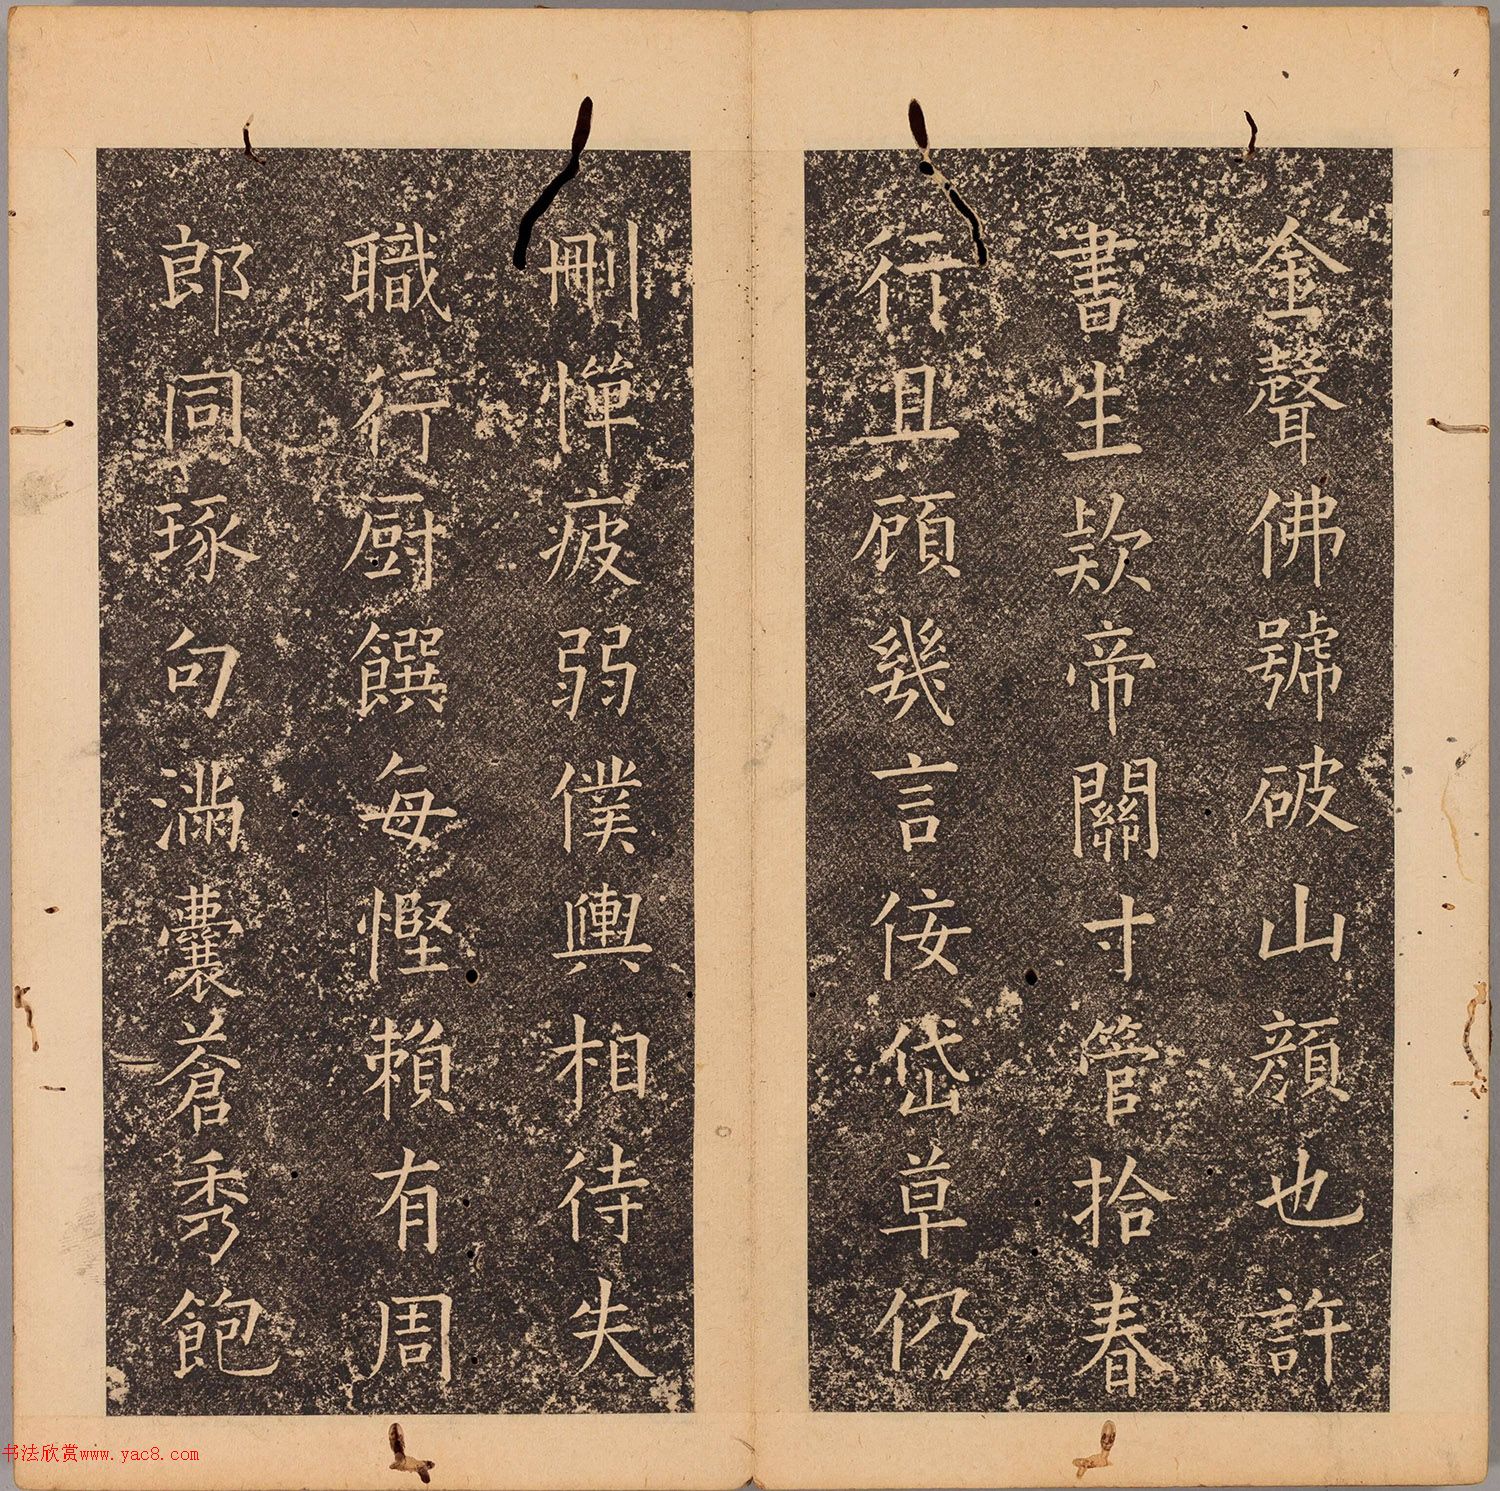 金聲佛號破山顏也許
書生欵帝關寸管拾春
行且顧幾言佞岱草仍
刪憚疲弱僕輿相待失
職行厨饌每慳賴有周
郎同琢句滿囊蒼秀飽
书法欣赏www.yac8.com